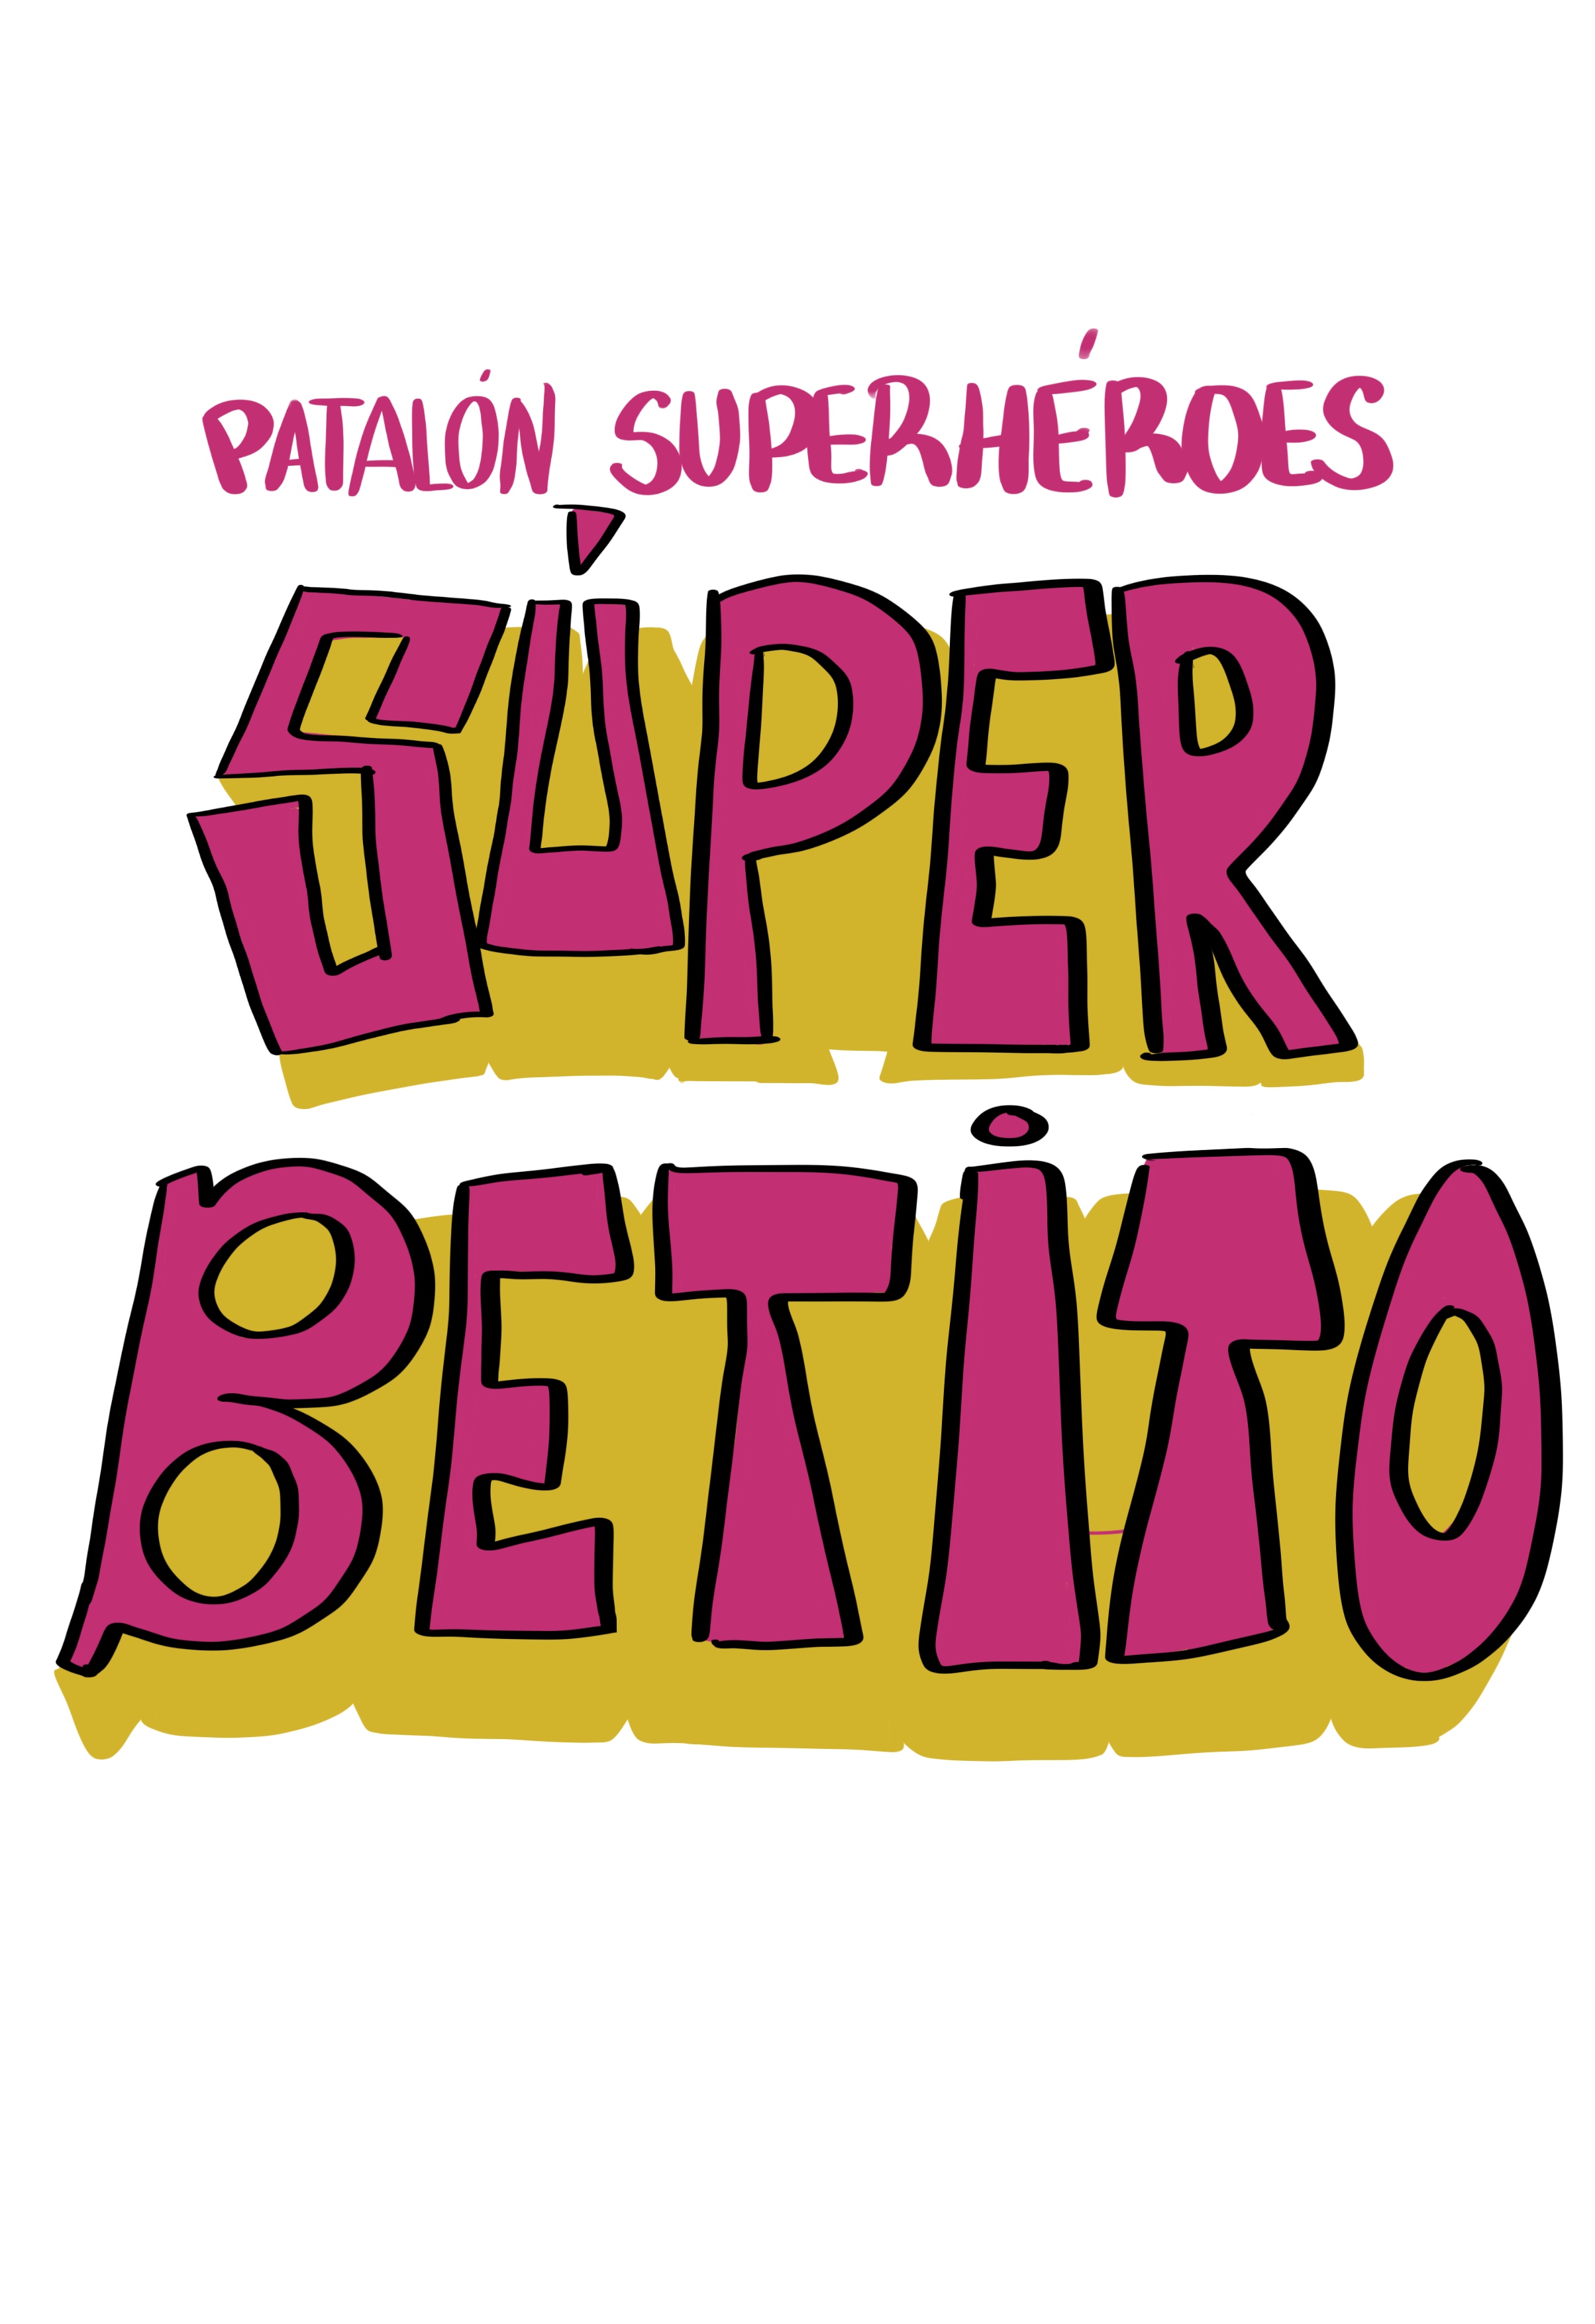 PATALÓN SUPERHÉROES
SÚPER
BETITO